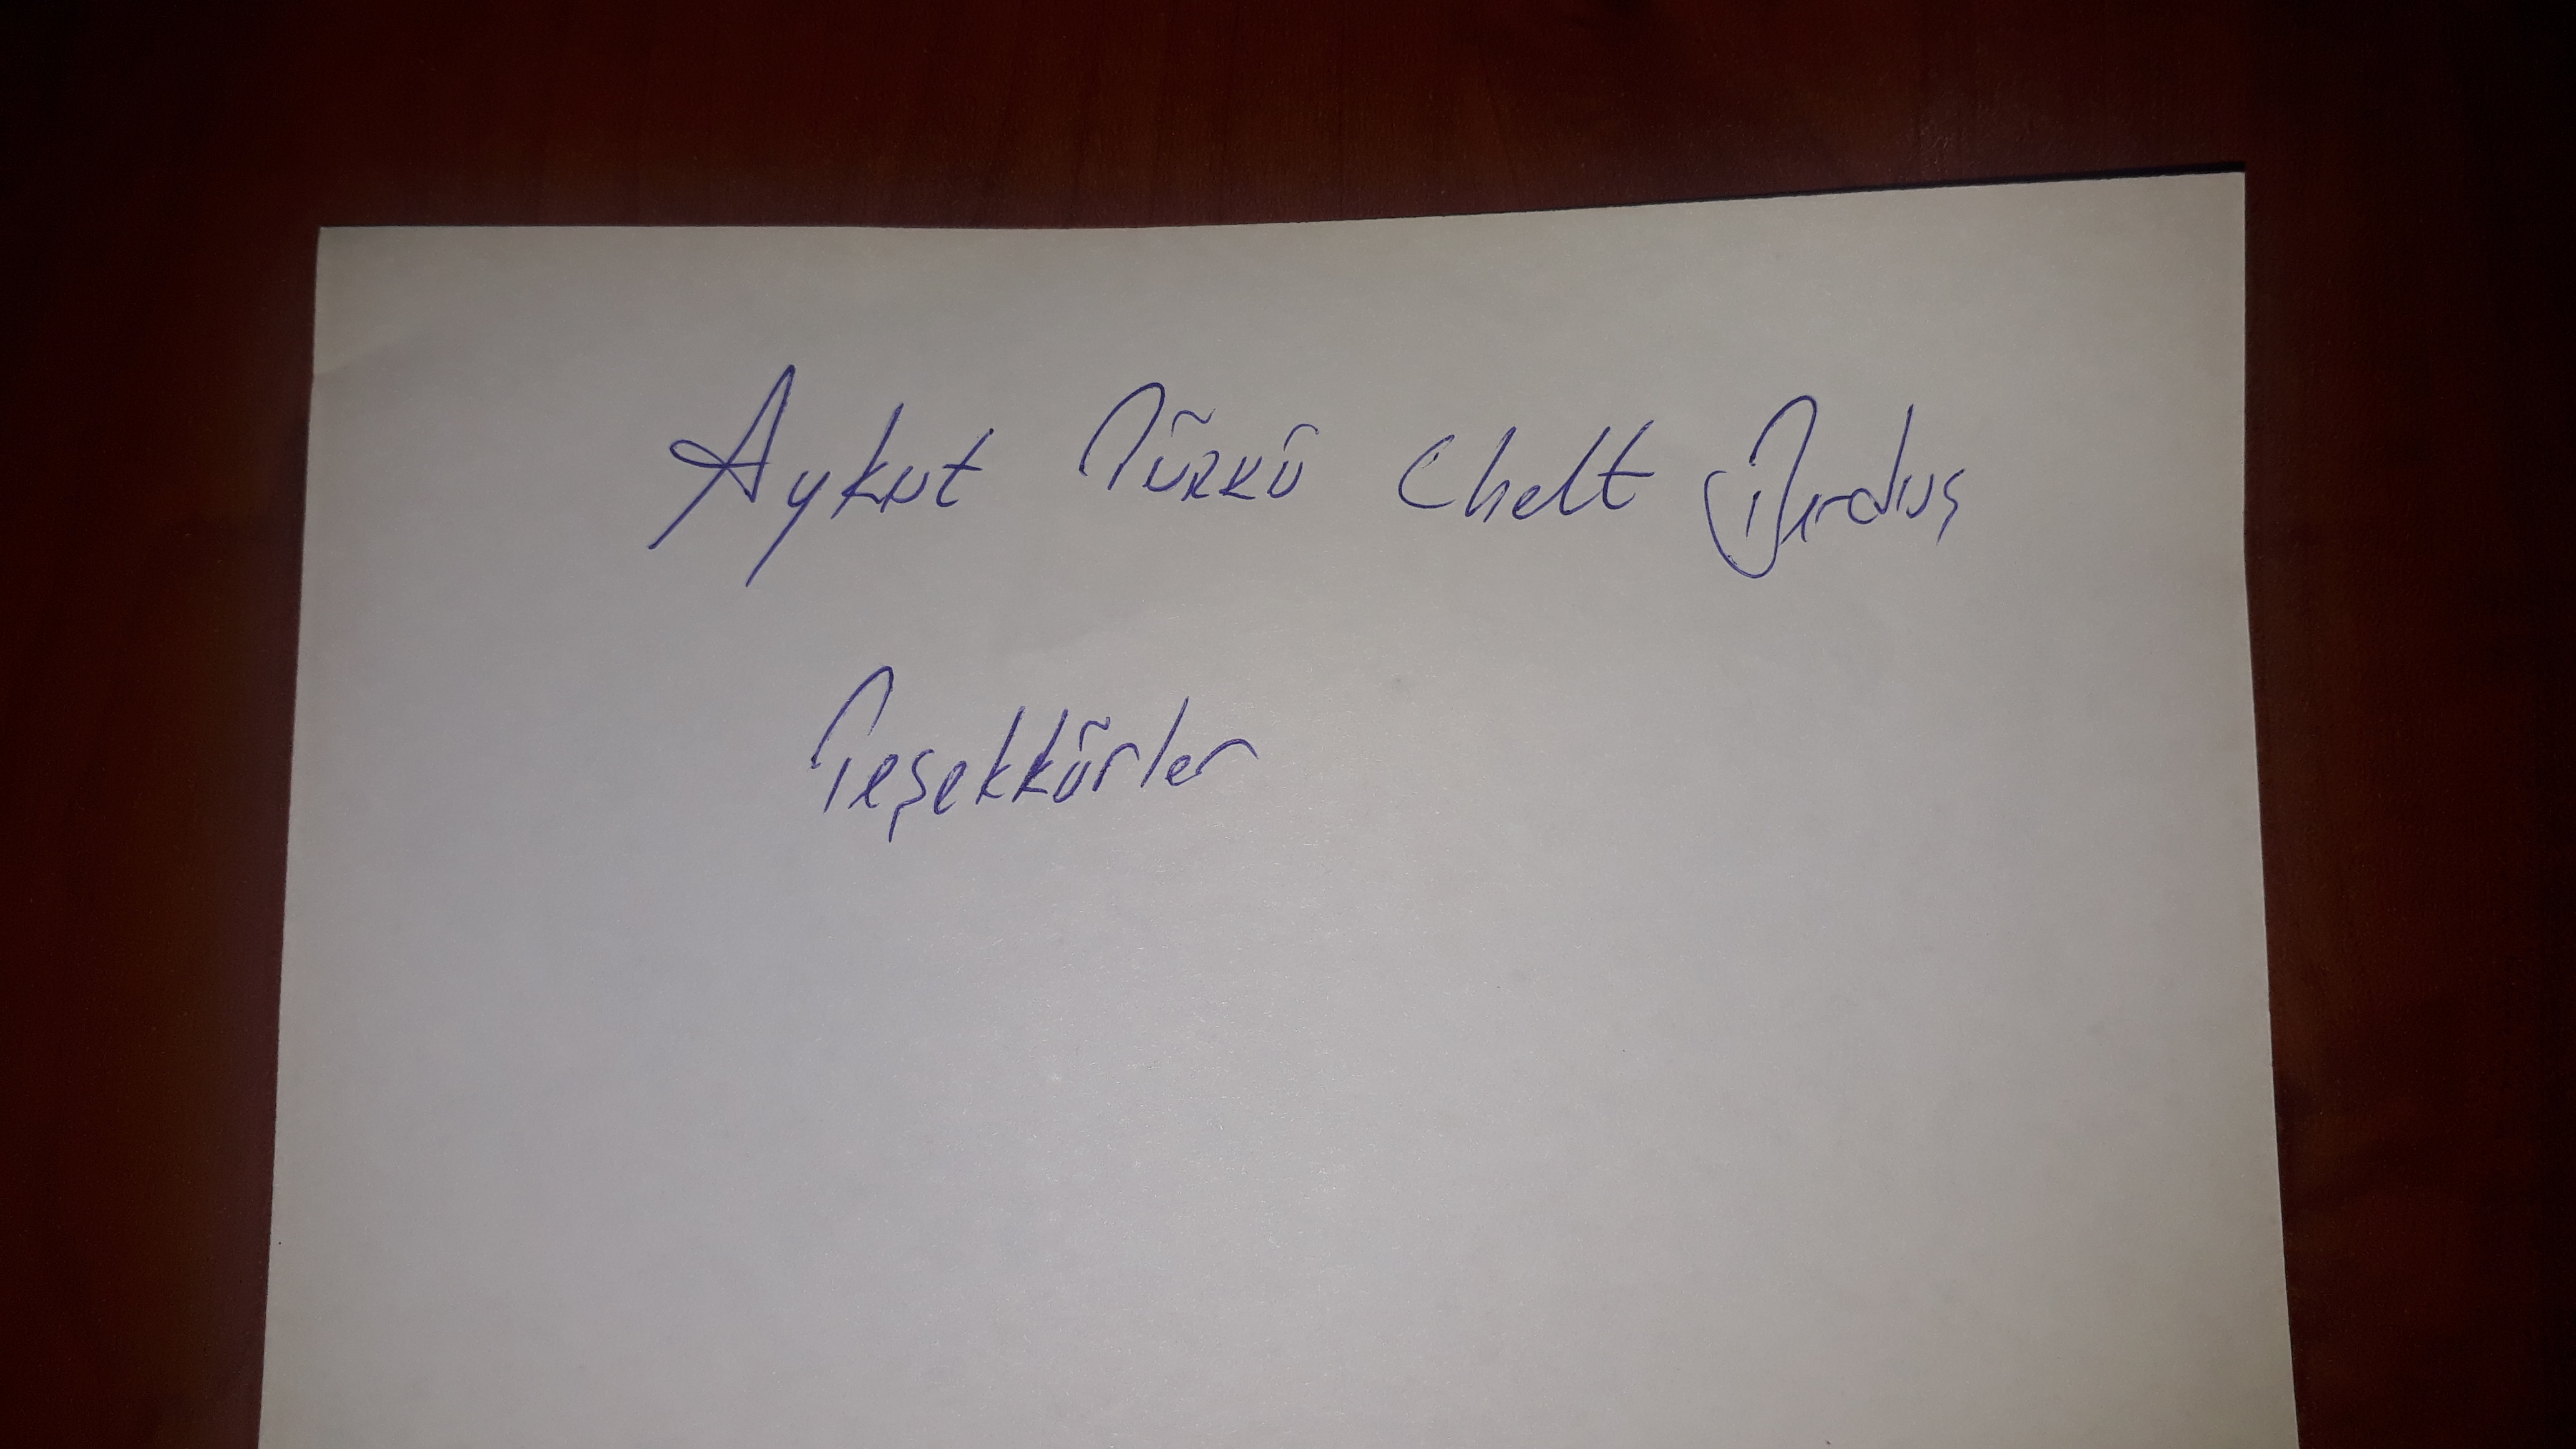 Aykut Türkü Chelt Durduş
Teşekkürler